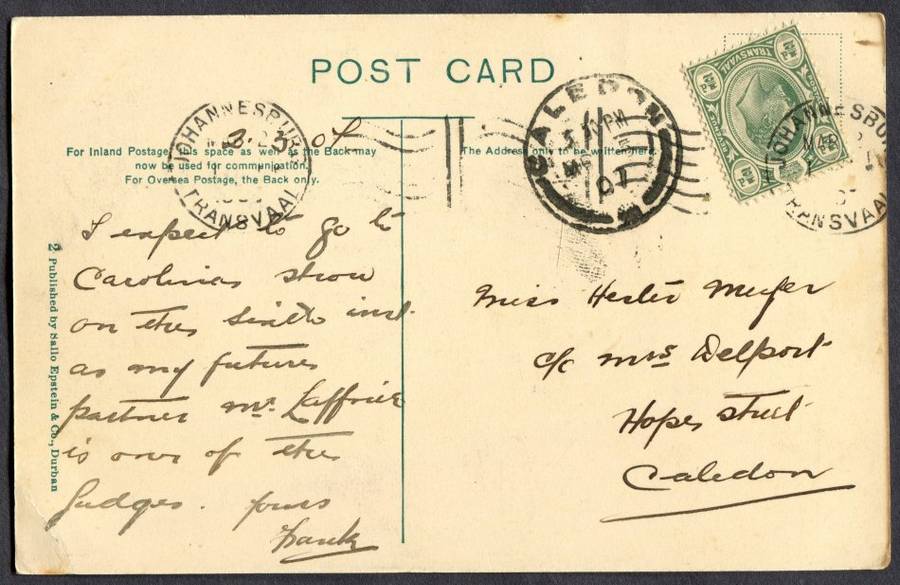 POST CARD
For Inland Postage, this space as well as the Back may
now be used for communication.
For Oversea Postage, the Back only.
The Address only to be written here.
JOHANNESBURG
TRANSVAAL
CALEDON
5.30 PM
07
TRANSVAAL
JOHANNESBU
MAR 2
TRANSVAAL
2. 3. 07
I expect to go to
Carolina show
on the sixth inst.
as my future
partner Mr.
is one of the
Judges. yours
Frank
Miss Hester Meyer
c/o Mrs Delport
Hope Street
Caledon
2 Published by Sallo Epstein & Co., Durban